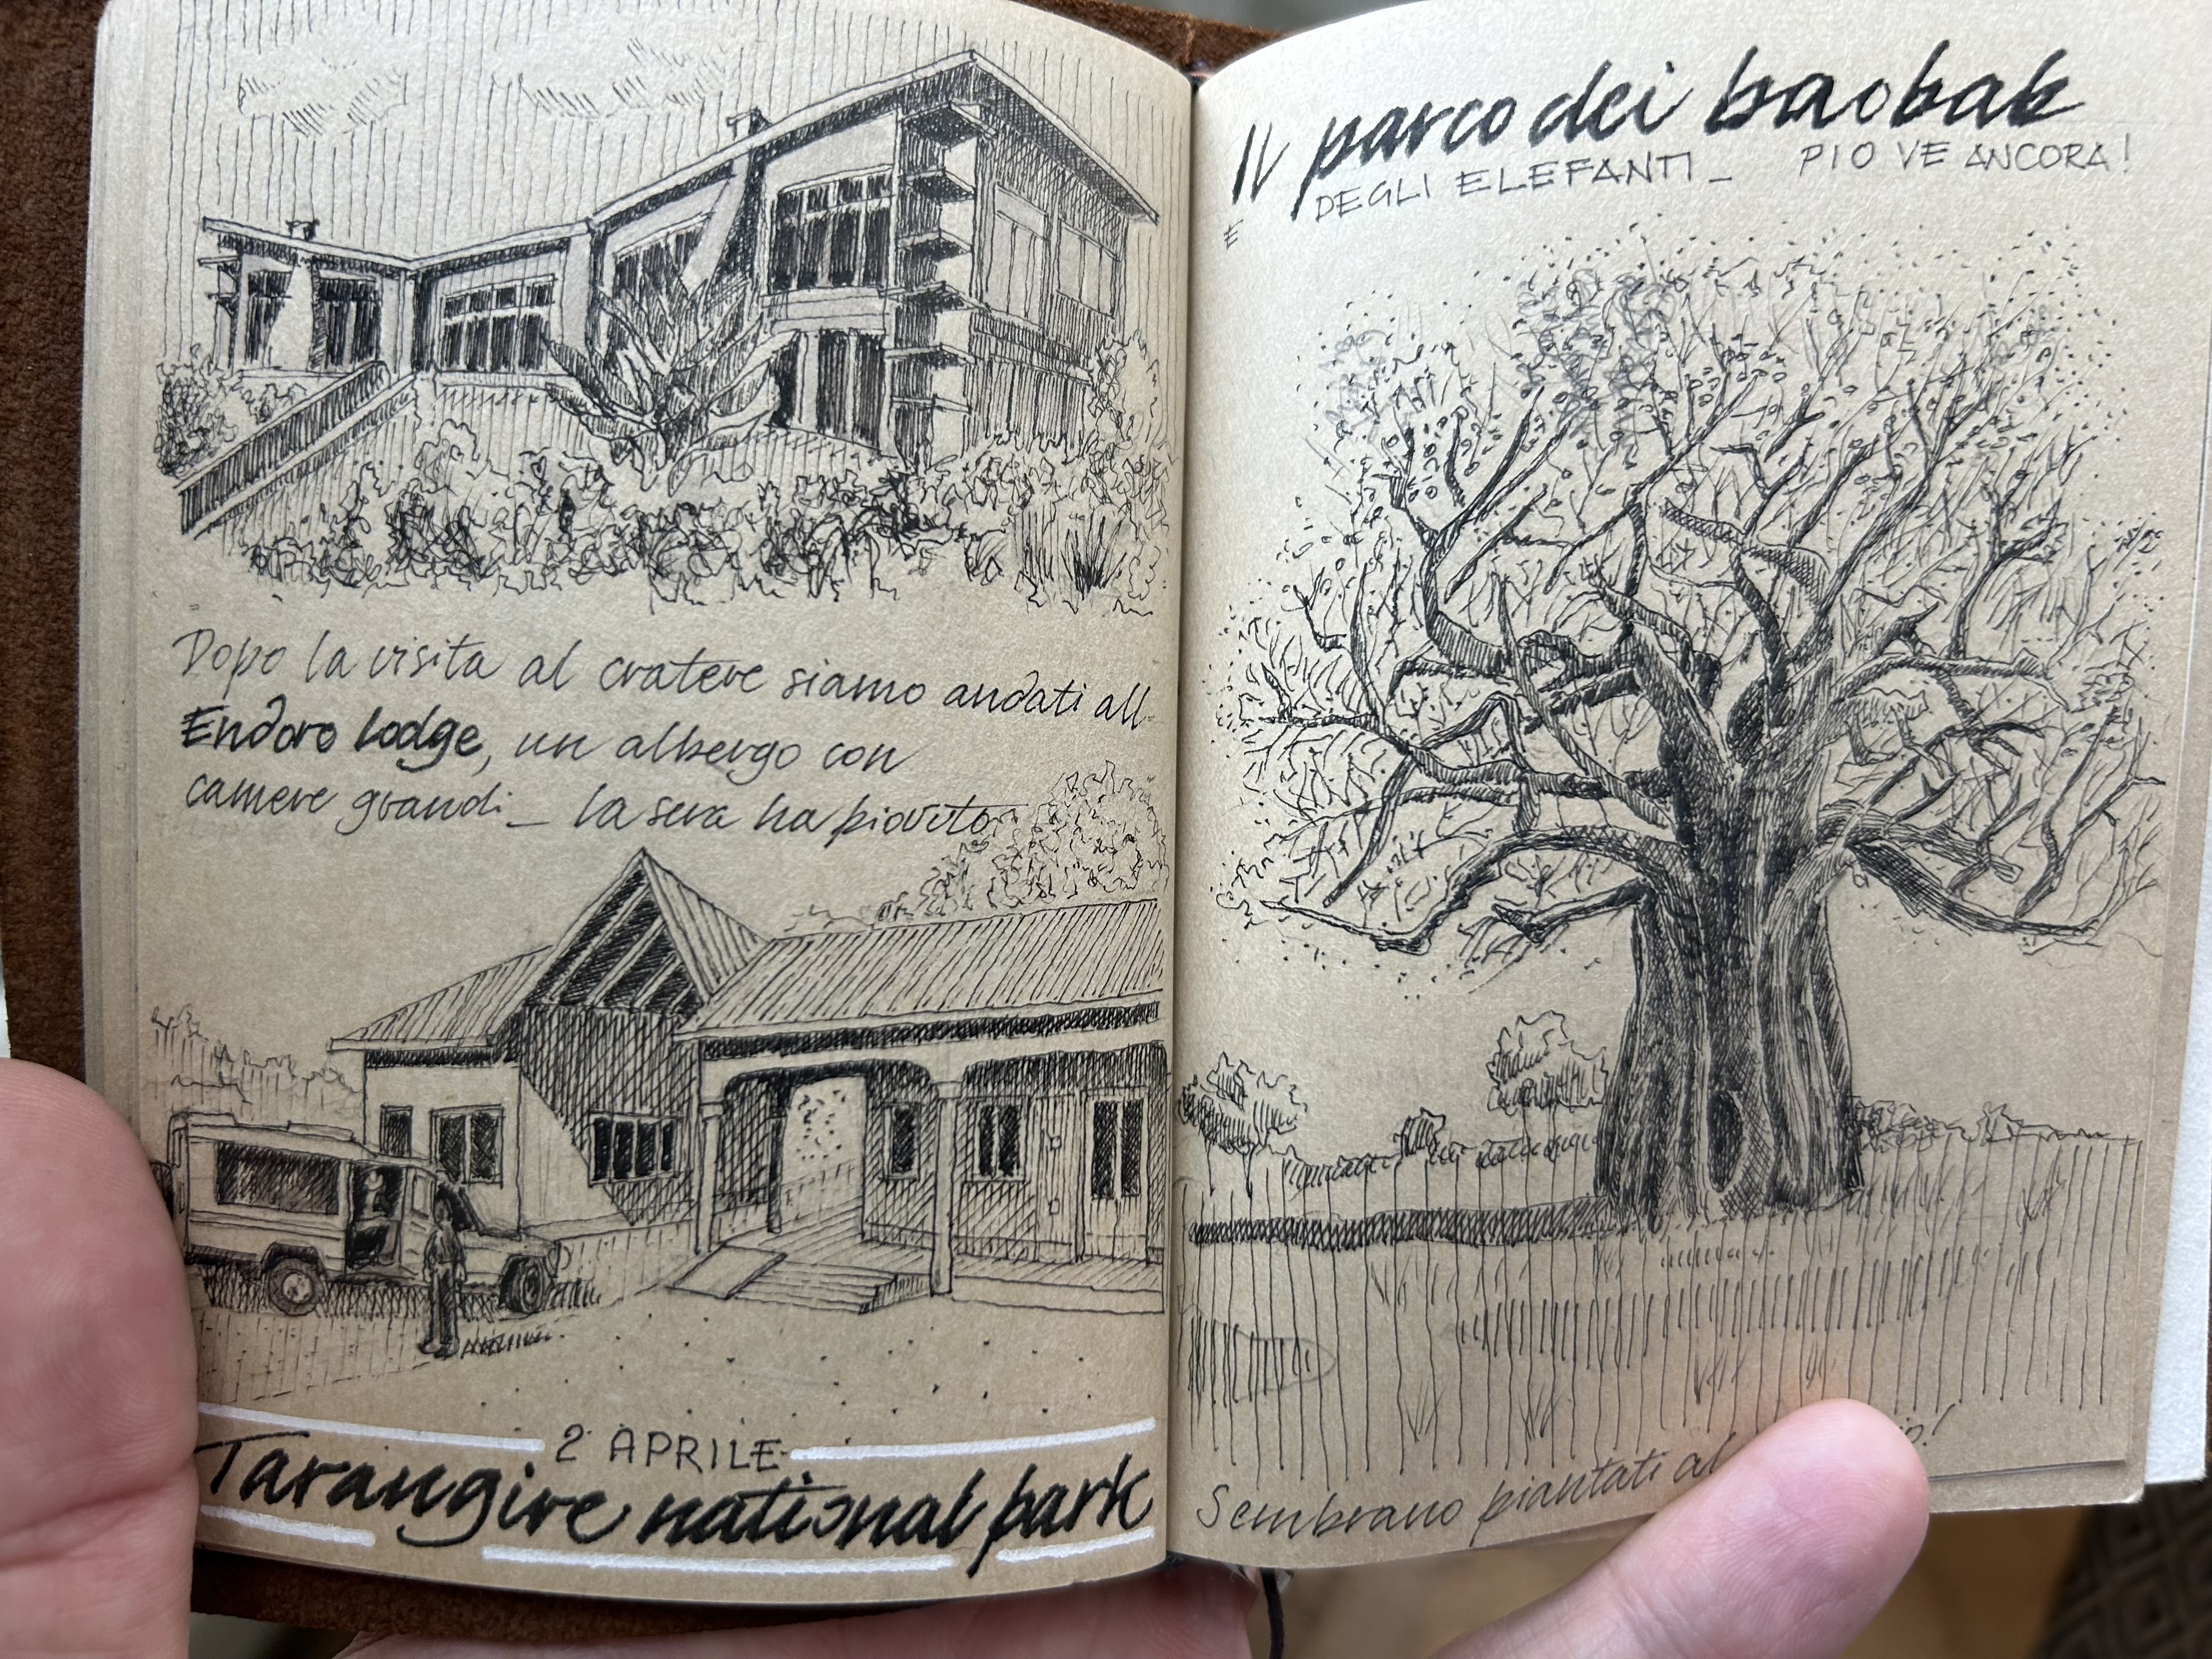 Dopo la visita al cratere siamo andati all
Endoro lodge, un albergo con
camere grandi_ la sera ha piovuto
2 APRILE
Tarangire national park
Il parco dei baobab
E DEGLI ELEFANTI_ PIOVE ANCORA!
Sembrano piantati al